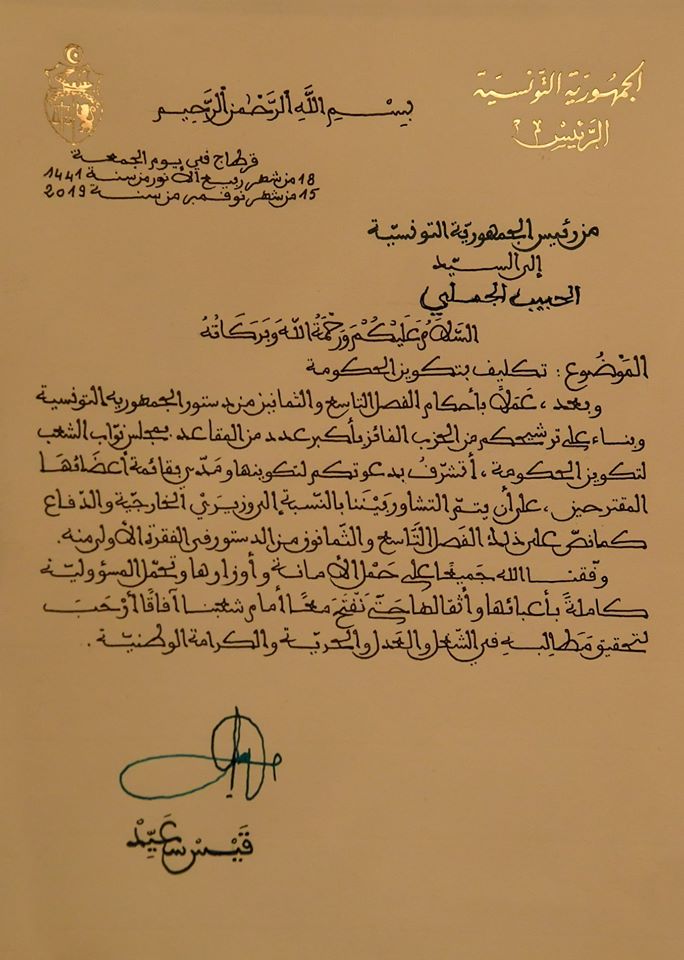 الجمهورية التونسية
الرئيس
بِسْمِ اللَّهِ الرَّحْمٰنِ الرَّحِيمِ
قرطاج في يوم الجمعة
18 من شهر ربيع الأنور من سنة 1441
15 من شهر نوفمبر من سنة 2019
من رئيس الجمهوريّة التونسيّة
إلى السيّد
الحبيب الجملي
السَّلَامُ عَلَيْكُمْ وَرَحْمَةُ اللَّهِ وَبَرَكَاتُهُ
المَوْضُوع : تكليف بتكوين الحكومة
وبعد، عَمَلًا بأحكام الفصل التاسع والثمانين من دستور الجمهورية التونسية
وبناء على ترشيحكم من الحزب الفائز بأكبر عدد من المقاعد بمجلس نوّاب الشعب
لتكوين الحكومة، أتشرّف بدعوتكم لتكوينها ومَدّي بقائمة أعضائها
المقترحين، على أن يتمّ التشاور بَيْننا بالنّسبة إلى وزيرَيْ الخارجيّة والدّفاع
كما نصّ على ذلك الفصل التّاسع والثّمانون من الدستور في الفقرة الأولى منه.
وفّقنا الله جَميعًا على حَمْل الأمانة وأوزارها وتحمّل المسؤوليّة
كاملةً بأعبائها وأثقالها حَتّى نَفْتَحَ معًا أمام شعبنا آفاقًا أرْحَبَ
لتحقيق مَطَالبه في الشّغل والعَدل والحريّة والكرامة الوطنيّة.
قَيْس سَعَيِّدْ